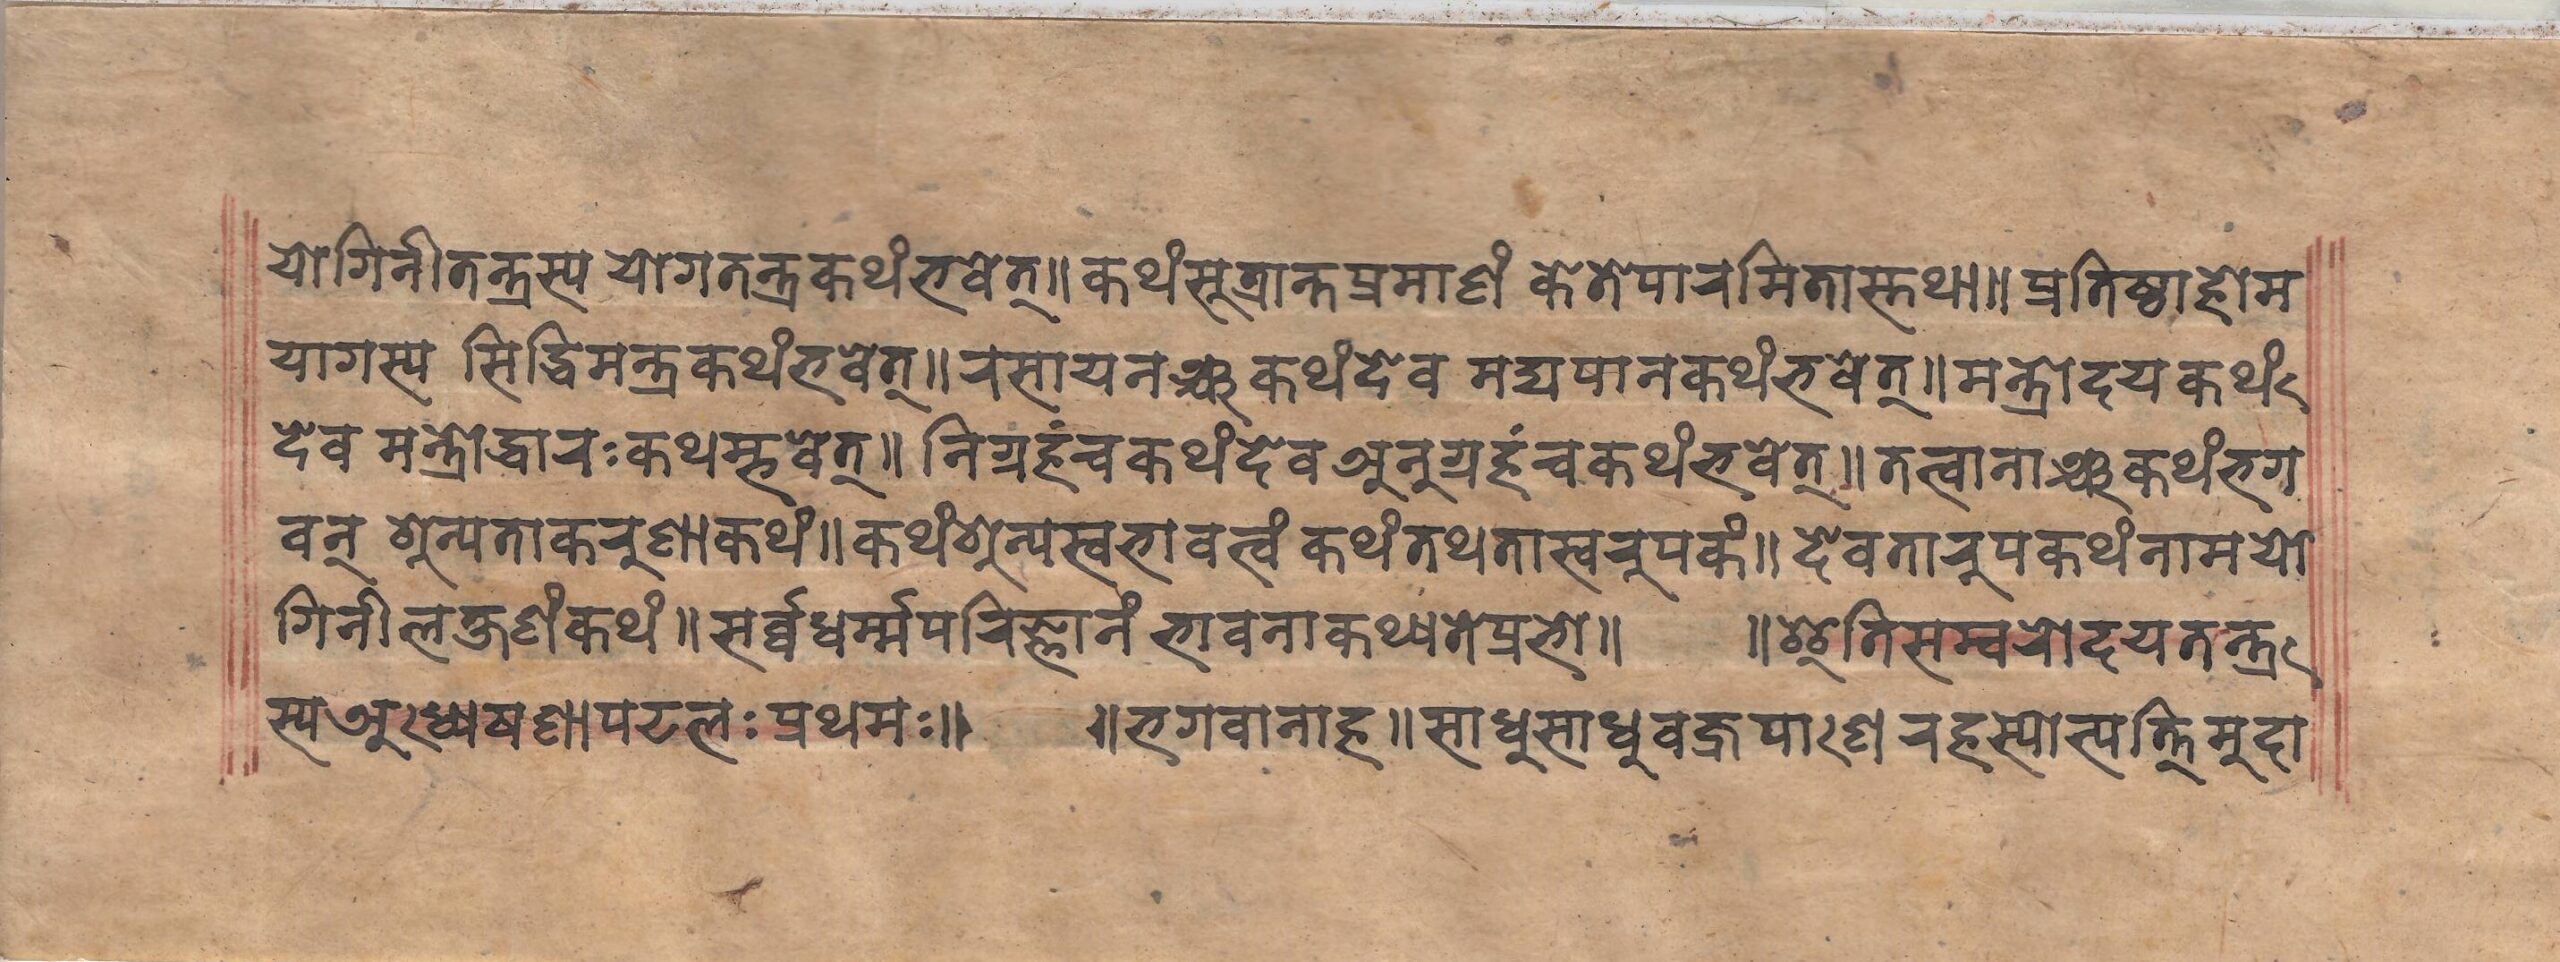 योगिनीतन्त्रस्य योगतन्त्रकथंभवेत्॥ कथंसूत्रान्तप्रमाणं केतेपारमितास्तथा॥ प्रतिष्ठाहोम
यागस्य सिद्धिमन्त्रकथंभवेत्॥ रसायनञ्चकथंदेव मद्यपानकथंभवेत्॥ मन्त्रोदयकथं
देव मन्त्रोद्धारःकथम्भवेत्॥ निग्रहंचकथंदेव अनुग्रहंचकथंभवेत्॥ तत्वानाञ्चकथंभग
वन् शून्यताकरुणाकथं॥ कथंशून्यस्वभावत्वं कथंतथतास्वरुपकं॥ देवतारुपकथंनामयो
गिनीलक्षणंकथं॥ सर्व्वधर्म्मपरिज्ञानं भावनाकथ्यतेप्रभो॥ ॥इतिसम्वरोदयतन्त्र
स्य अध्येषणापटलः प्रथमः॥ ॥भगवानाह॥ साधुसाधुवज्रपाणे रहस्योत्पत्तिमुदा